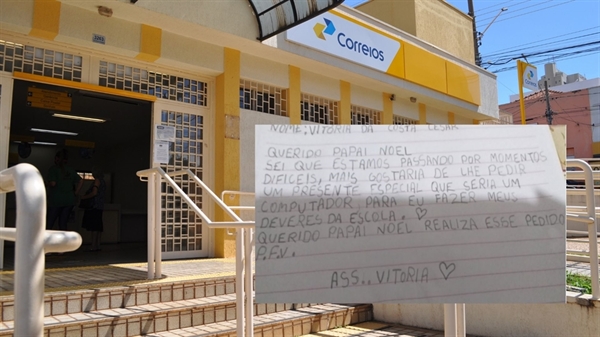 Correios
NOME; VITORIA DA COSTA CESAR
QUERIDO PAPAI NOEL
SEI QUE ESTAMOS PASSANDO POR MOMENTOS
DIFICEIS, MAIS GOSTARIA DE LHE PEDIR
UM PRESENTE ESPECIAL QUE SERIA UM
COMPUTADOR PARA EU FAZER MEUS
DEVERES DA ESCOLA. ♡
QUERIDO PAPAI NOEL REALIZA ESSE PEDIDO
P.F.V.
ASS.. VITORIA ♡